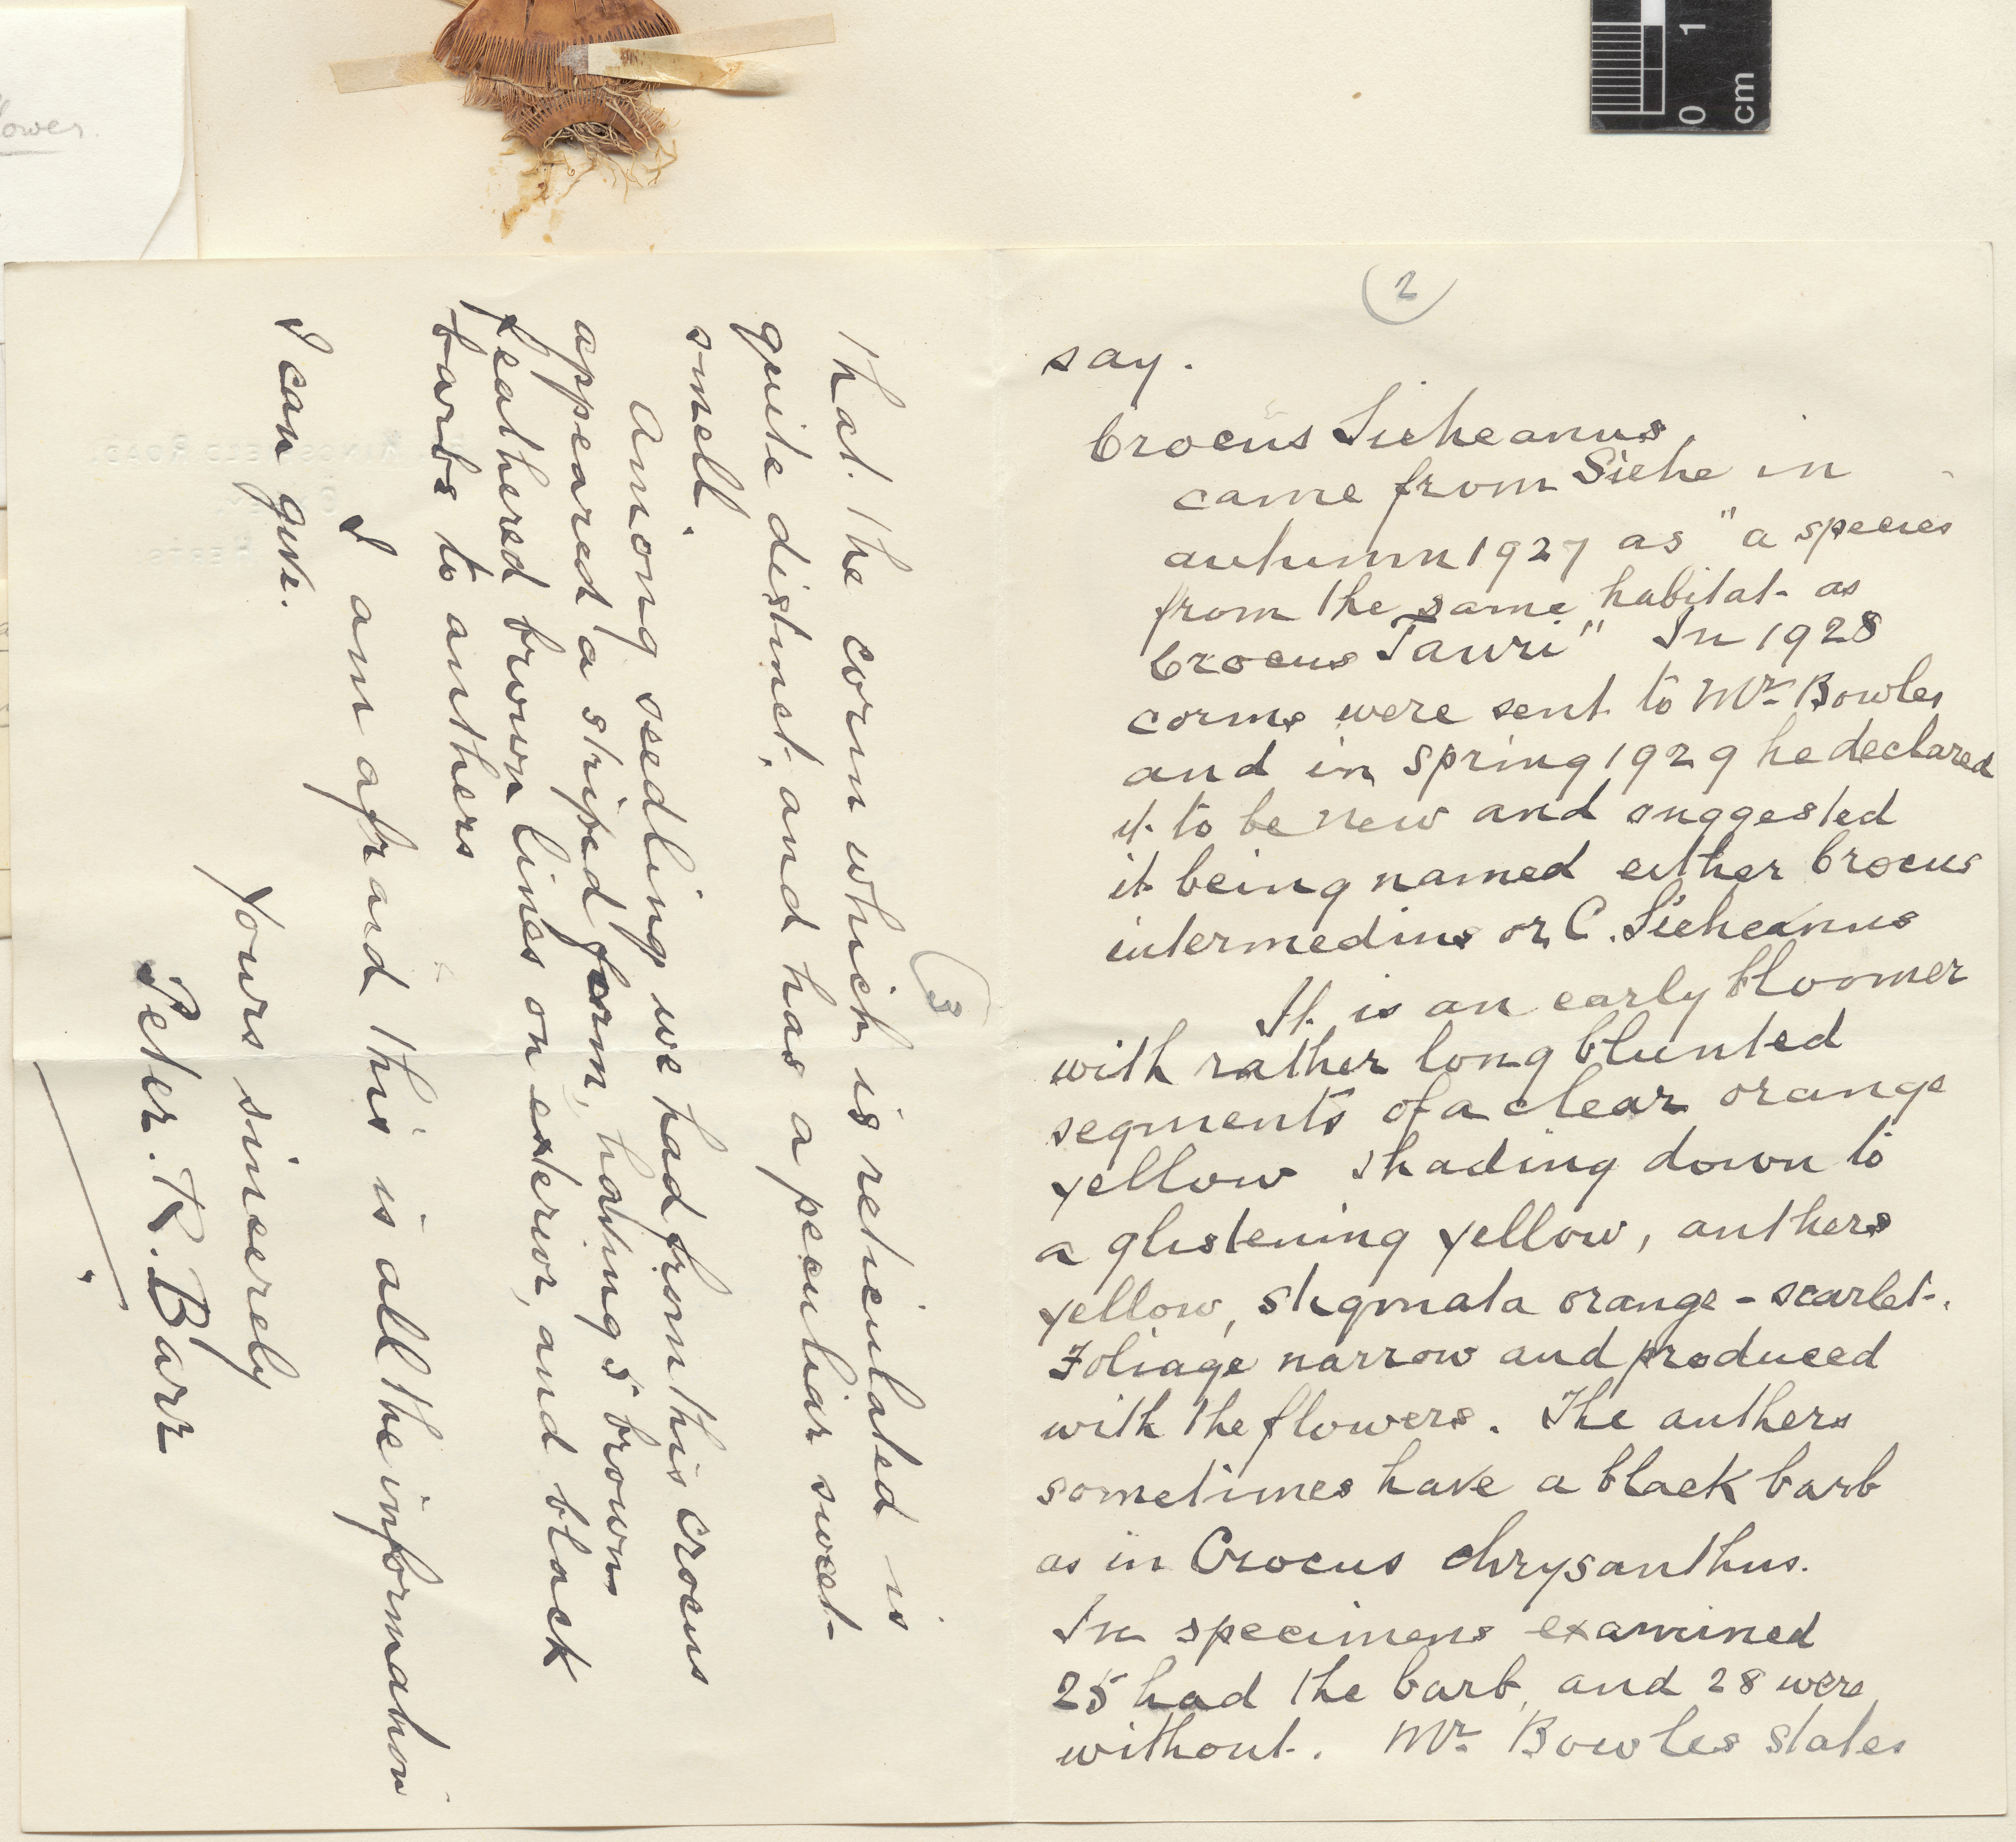 lower.
0 1
cm
2
say.
Crocus Sieheanus,
came from Siehe in
autumn 1927 as "a species
from the same habitat as
Crocus Tauri" In 1928
corms were sent to Mr Bowles
and in spring 1929 he declared
it to be new and suggested
it being named either Crocus
intermedius or C. Sieheanus
It is an early bloomer
with rather long blunted
segments of a clear orange
yellow shading down to
a glistening yellow, anthers
yellow, stigmata orange-scarlet.
Foliage narrow and produced
with the flowers. The anthers
sometimes have a black barb
as in Crocus chrysanthus.
In specimens examined
25 had the barb, and 28 were
without. Mr Bowles states
3
that the corm which is reticulated is
quite distinct, and has a peculiar sweet
smell.
Among seedlings we had from this crocus
appeared a striped form, having 5 brown
feathered brown lines on exterior, and black
barbs to anthers
I am afraid this is all the information
I can give.
Yours sincerely
Peter. R. Barr
KINGSFIELD ROAD
HERTS.